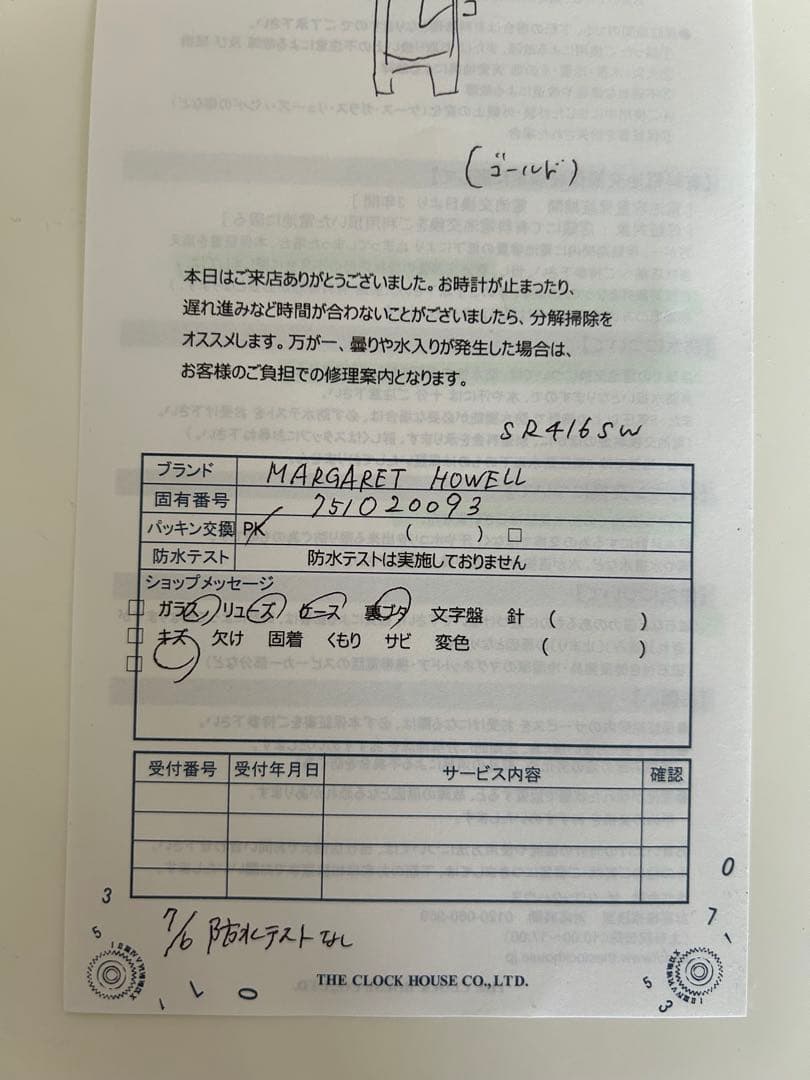 (ゴールド)
本日はご来店ありがとうございました。お時計が止まったり、
遅れ進みなど時間が合わないことがございましたら、分解掃除を
オススメします。万が一、曇りや水入りが発生した場合は、
お客様のご負担での修理案内となります。
SR416SW
ブランド MARGARET HOWELL
固有番号 751020093
パッキン交換 PK ( ) □
防水テスト 防水テストは実施しておりません
ショップメッセージ
□ ガラス リューズ ケース 裏ブタ 文字盤 針 ( )
□ キズ 欠け 固着 くもり サビ 変色 ( )
□
受付番号 受付年月日 サービス内容 確認
7/6 防水テストなし
THE CLOCK HOUSE CO.,LTD.